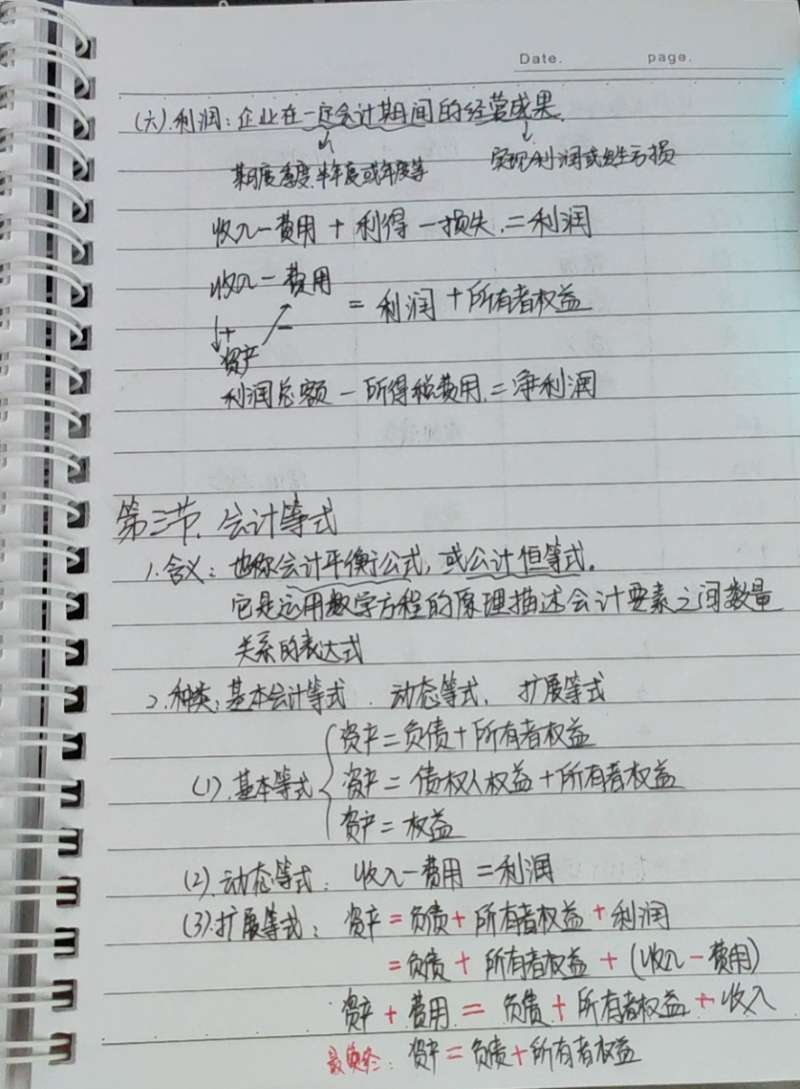 Date. page.
(六).利润:企业在一定会计期间的经营成果.
月度季度、半年度或年度等 实现利润或发生亏损
收入-费用+利得-损失=利润
收入-费用
=利润+所有者权益
+ -
资产
利润总额-所得税费用=净利润
第三节、会计等式
1.含义:也称会计平衡公式,或会计恒等式。
它是运用数学方程的原理描述会计要素之间数量
关系的表达式
2.种类:基本会计等式.动态等式.扩展等式
资产=负债+所有者权益
(1).基本等式 资产=债权人权益+所有者权益
资产=权益
(2).动态等式:收入-费用=利润
(3).扩展等式:资产=负债+所有者权益+利润
=负债+所有者权益+(收入-费用)
资产+费用=负债+所有者权益+收入
资产=负债+所有者权益